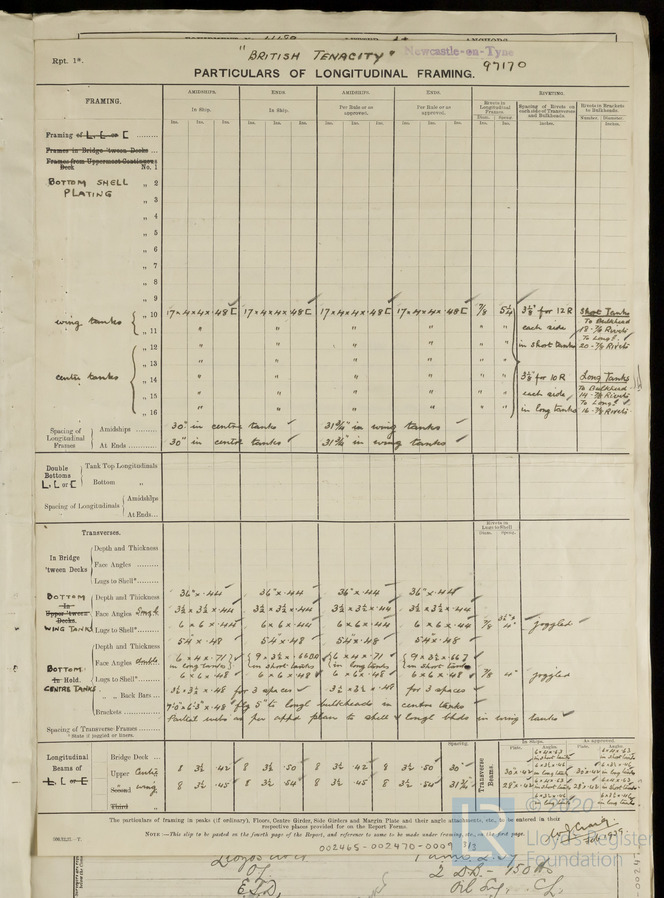 Rpt. 1*.
"BRITISH TENACITY"
Newcastle-on-Tyne
97170
PARTICULARS OF LONGITUDINAL FRAMING.
FRAMING.
AMIDSHIPS. ENDS. AMIDSHIPS. ENDS. RIVETING.
In Ship. In Ship. Per Rule or as approved. Per Rule or as approved.
Rivets in Longitudinal Frames. Spacing of Rivets on each side of Transverses and Bulkheads. Rivets in Brackets to Bulkheads.
Ins. Ins. Ins. Ins. Ins. Ins. Ins. Ins. Ins. Ins. Ins. Ins. Diam. Ins. Spcng. Ins. Inches. Number. Diameter. Inches.
Framing of L, L or [
Frames in Bridge 'tween Decks ...
Frames from Uppermost Continuous Deck No. 1
BOTTOM SHELL PLATING
„ 2
„ 3
„ 4
„ 5
„ 6
„ 7
„ 8
„ 9
„ 10 17 × 4 × 4 × .48 [ 17 × 4 × 4 × .48 [ 17 × 4 × 4 × .48 [ 17 × 4 × 4 × .48 [ 7/8 5¼ 3½" for 12 R Short Tanks
wing tanks
„ 11 " " " " " " each side To Bulkhead 18 - 7/8 Rivets
„ 12 " " " " " " in short tanks To Longl. 20 - 7/8 Rivets
„ 13 " " " " " "
center tanks
„ 14 " " " " " " 3½" for 10 R Long Tanks
„ 15 " " " " " " each side To Bulkhead 14 - 7/8 Rivets
„ 16 " " " " " " in long tanks To Longl. 16 - 7/8 Rivets
Spacing of Longitudinal Frames
Amidships 30" in centre tanks 31¾" in wing tanks
At Ends 30" in centre tanks 31¾" in wing tanks
Double Bottoms L, L or [
Tank Top Longitudinals
Bottom „
Spacing of Longitudinals
Amidships
At Ends...
Transverses.
Rivets in Lugs to Shell
Diam. Spcng.
In Bridge 'tween Decks
Depth and Thickness
Face Angles
Lugs to Shell*
BOTTOM In Upper 'tween Decks. WING TANKS
Depth and Thickness 36" × .44 36" × .44 36" × .44 36" × .44
Face Angles Single 3½ × 3½ × .44 3½ × 3½ × .44 3½ × 3½ × .44 3½ × 3½ × .44
Lugs to Shell* 6 × 6 × .44 6 × 6 × .44 6 × 6 × .44 6 × 6 × .44 7/8 4" joggled
BOTTOM In Hold. CENTRE TANKS
Depth and Thickness 54 × .48 54 × .48 54" × .48 54" × .48
Face Angles double 6 × 4 × .71 in long tanks 9 × 3½ × in short tanks 6 × 4 × .71 in long tanks 9 × 3½ × .66 in short tanks
Lugs to Shell* 6 × 6 × .48 6 × 6 × .48 6 × 6 × .48 6 × 6 × .48 7/8 4" joggled
„ „ Back Bars 3½ × 3½ × .48 for 3 spaces 3½ × 3½ × .48 for 3 spaces
Brackets flg 5" to longl bulkheads in centre tanks
Spacing of Transverse Frames Partial webs as per appd plan to shell & longl bhds in wing tanks
* State if joggled or liners.
Longitudinal Beams of L, L or [
Spacing. In Ships. As approved.
Transverse Beams. Plate. Angles. Plate. Angles.
Bridge Deck ...
Upper Centre 8 3½ .42 8 3½ .50 8 3½ .42 8 3½ .50 30"
Second wing 8 3½ .45 8 3½ .54 8 3½ .45 8 3½ .54 31¾
Third „
The particulars of framing in peaks (if ordinary), Floors, Center Girder, Side Girders and Margin Plate and their angle attachments, etc., to be entered in their respective places provided for on the Report Forms.
NOTE :—This slip to be pasted in the fourth page of the Report, and reference to same to be made under framing, etc., on the first page.
002465-002470-0009 3/3
© 2020
Lloyd's Register
Foundation